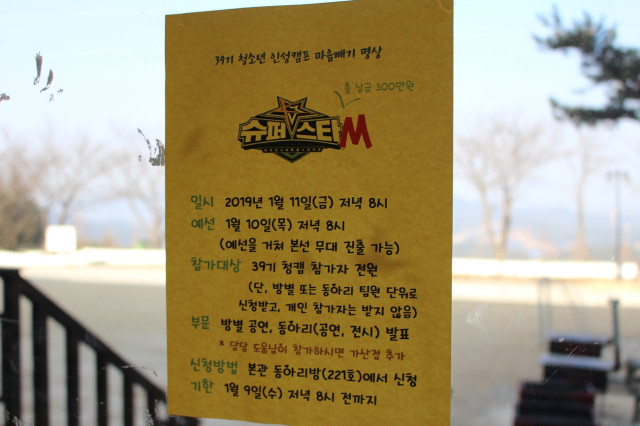 39기 청소년 인성캠프 마음빼기 명상
총 상금 300만원
슈퍼스타M
일시 2019년 1월 11일(금) 저녁 8시
예선 1월 10일(목) 저녁 8시
(예선을 거쳐 본선 무대 진출 가능)
참가대상 39기 청캠 참가자 전원
(단, 방별 또는 동아리 팀원 단위로
신청받고, 개인 참가자는 받지 않음)
부문 방별 공연, 동아리(공연, 전시) 발표
* 담당 도움님이 참가하시면 가산점 추가
신청방법 본관 동아리방(221호)에서 신청
기한 1월 9일(수) 저녁 8시 전까지